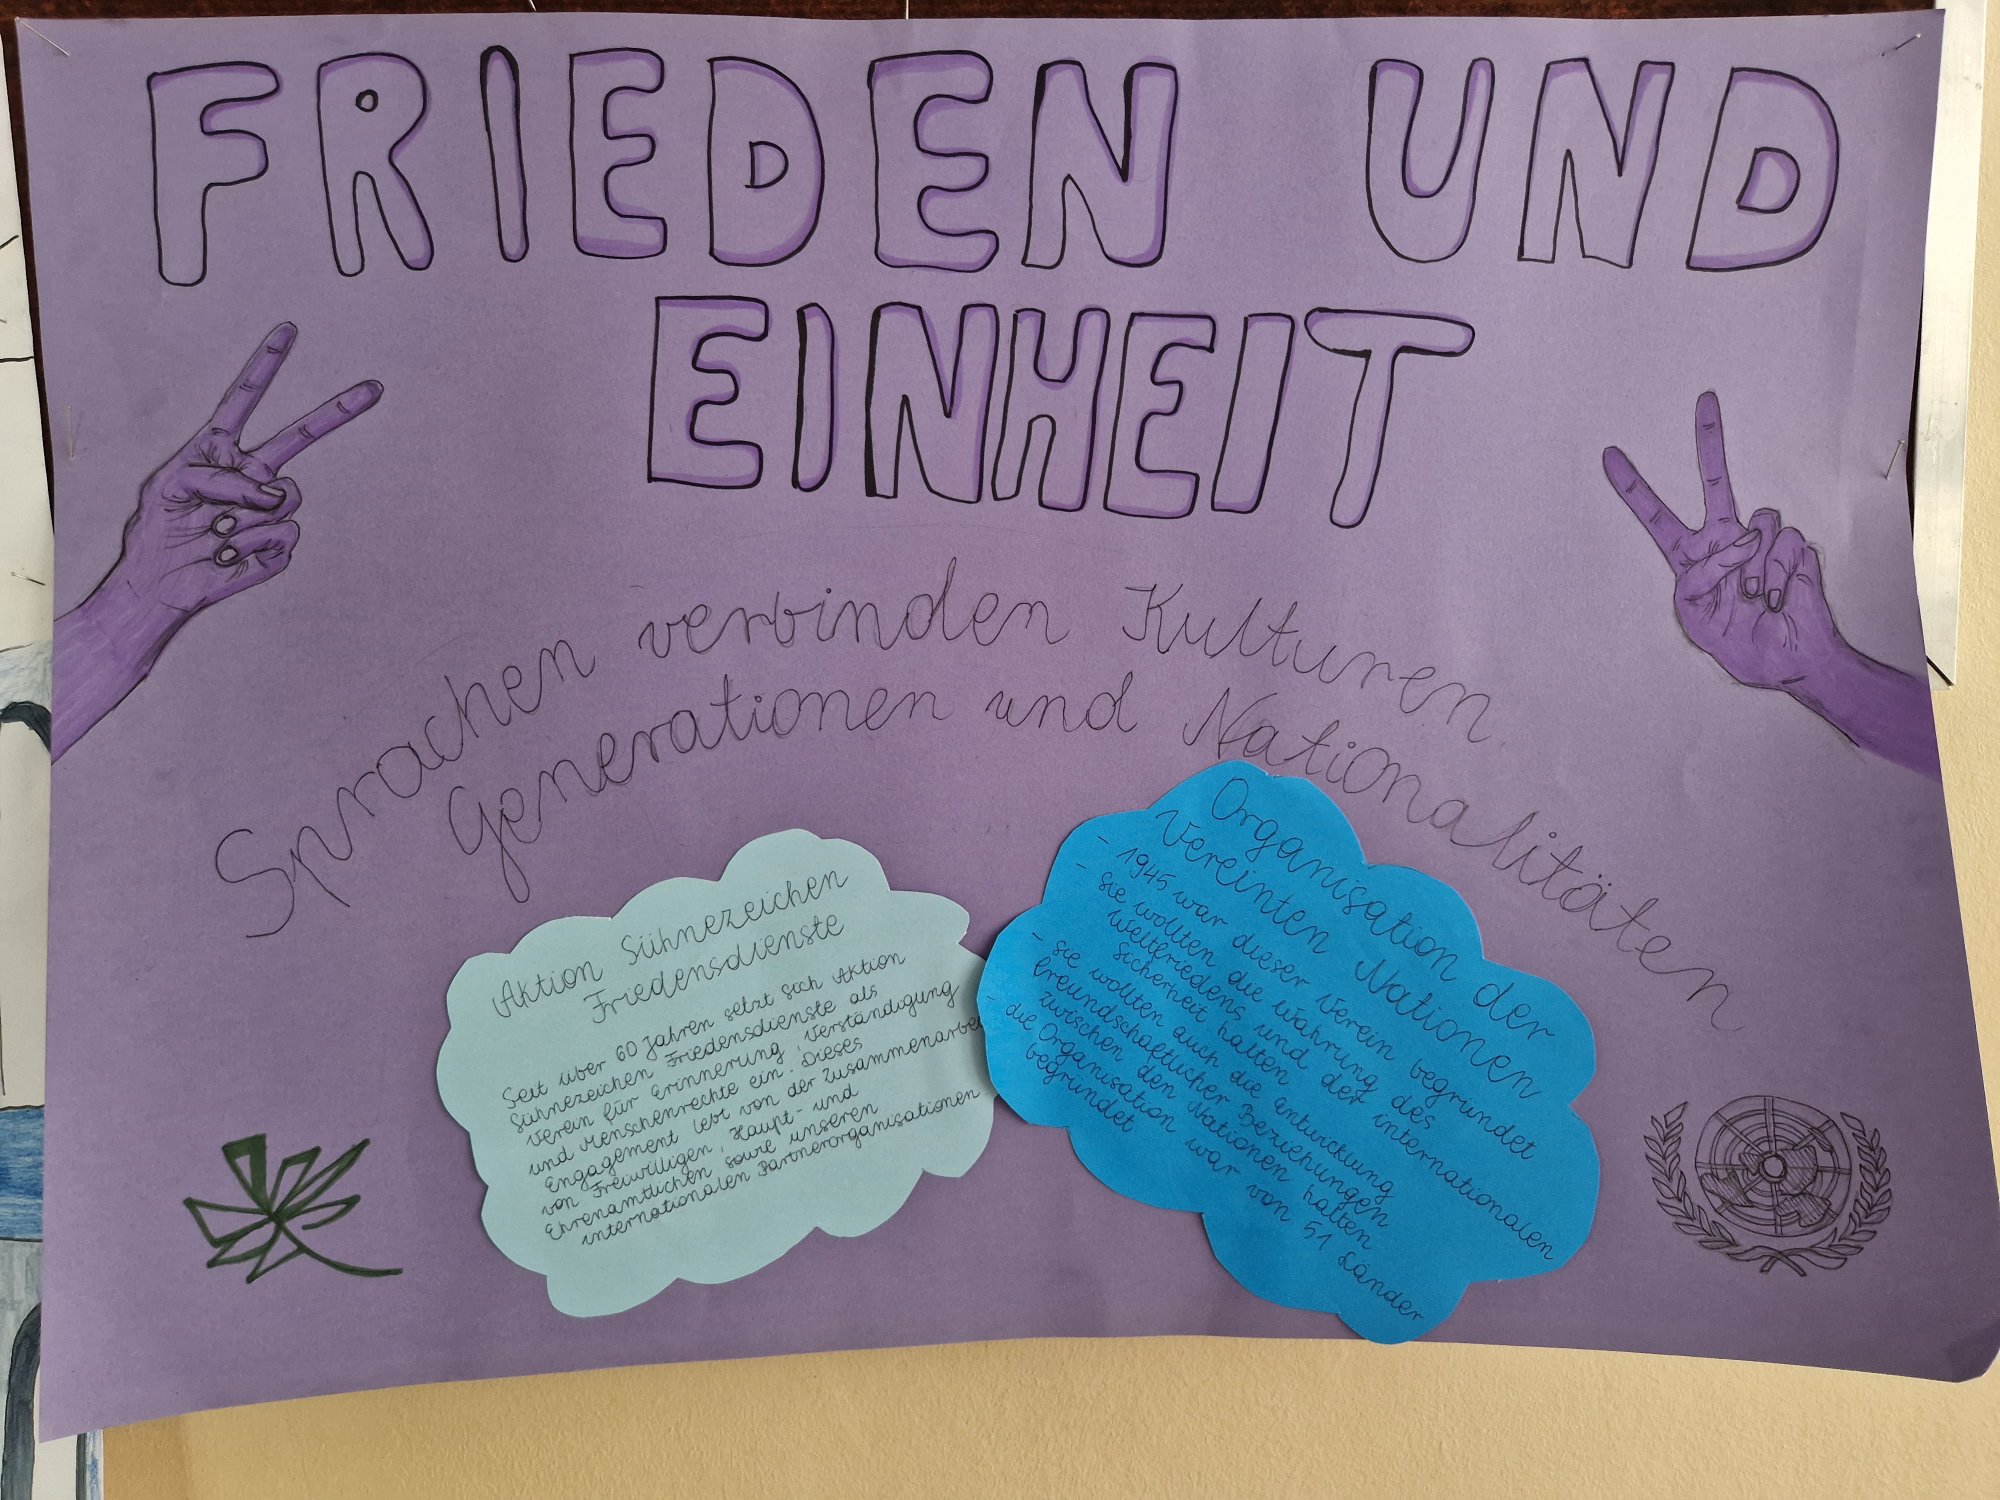 FRIEDEN UND
EINHEIT
Sprachen verbinden Kulturen,
Generationen und Nationalitäten
Aktion Sühnezeichen
Friedensdienste
Seit über 60 Jahren setzt sich Aktion
Sühnezeichen Friedensdienste als
Verein für Erinnerung, Verständigung
und Menschenrechte ein. Dieses
Engagement lebt von der Zusammenarbei
von Freiwilligen, Haupt- und
Ehrenamtlichen sowie unseren
internationalen Partnerorganisationen
Organisation der
Vereinten Nationen
- 1945 war dieser Verein begründet
- sie wollten die Wahrung des
Weltfriedens und der internationalen
Sicherheit halten
- sie wollten auch die Entwicklung
freundschaftlicher Beziehungen
zwischen den Nationen halten
- die Organisation war von 51 Länder
begründet